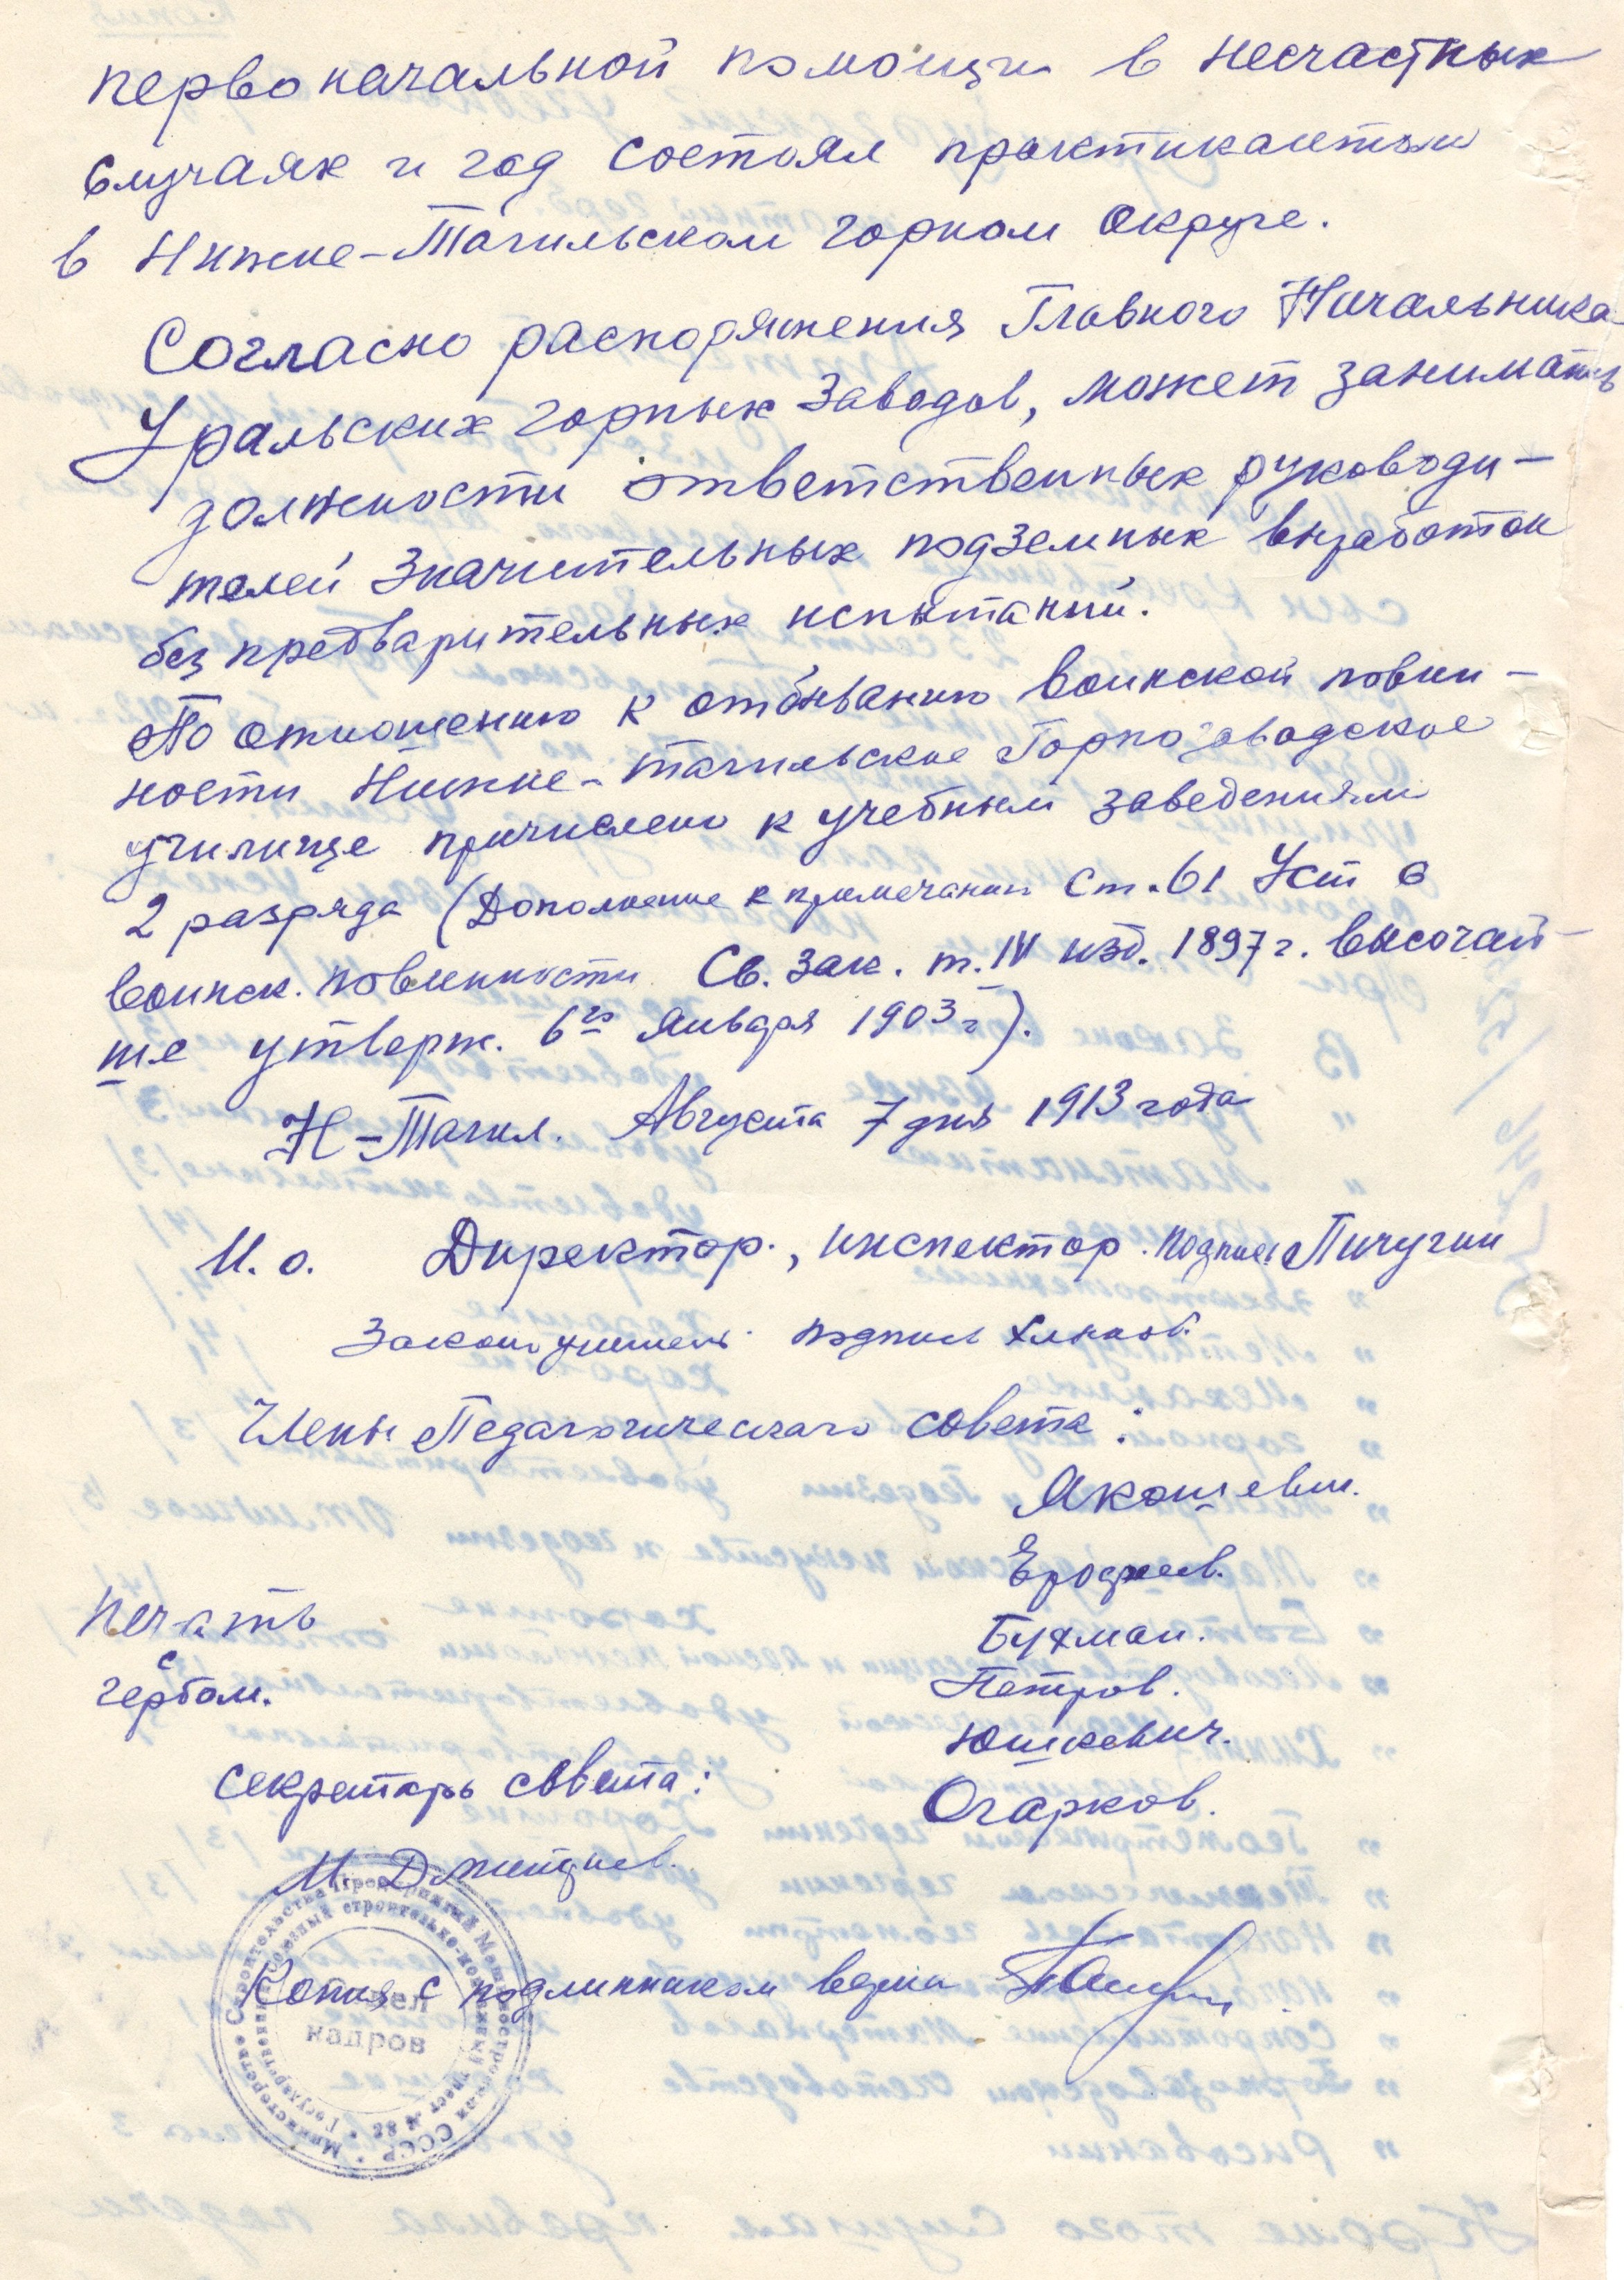 первоначальной помощи в несчастных
случаях и год состоял практикантом
в Нижне-Тагильском горном округе.
Согласно распоряжения Главного Начальника
Уральских горных заводов, может занимать
должности ответственных руководи-
телей значительных подземных выработок
без предварительных испытаний.
По отношению к отбыванию воинской повин-
ности Нижне-Тагильское Горнозаводское
училище причислено к учебным заведениям
2 разряда (Дополнение к примечанию Ст. 61 Уст о
воинск. повинности Св. Зак. т. IV изд. 1897 г. высочай-
ше утверж. 6го января 1903 г).
Н-Тагил. Августа 7 дня 1913 года
И. о. Директор., инспектор. подпись Пичугин
Законоучитель. подпись
Члены Педагогического совета:
Якошевич.
Ерофеев.
Бухман.
Петров.
Юшкевич.
Огарков.
Печать
с
гербом.
Секретарь совета:
М. Дмитриев.
Копия с подлинником верна
Министерство Строительства Предприятий Машиностроения СССР
Государственный союзный строительно-монтажный трест № 88
Отдел
кадров